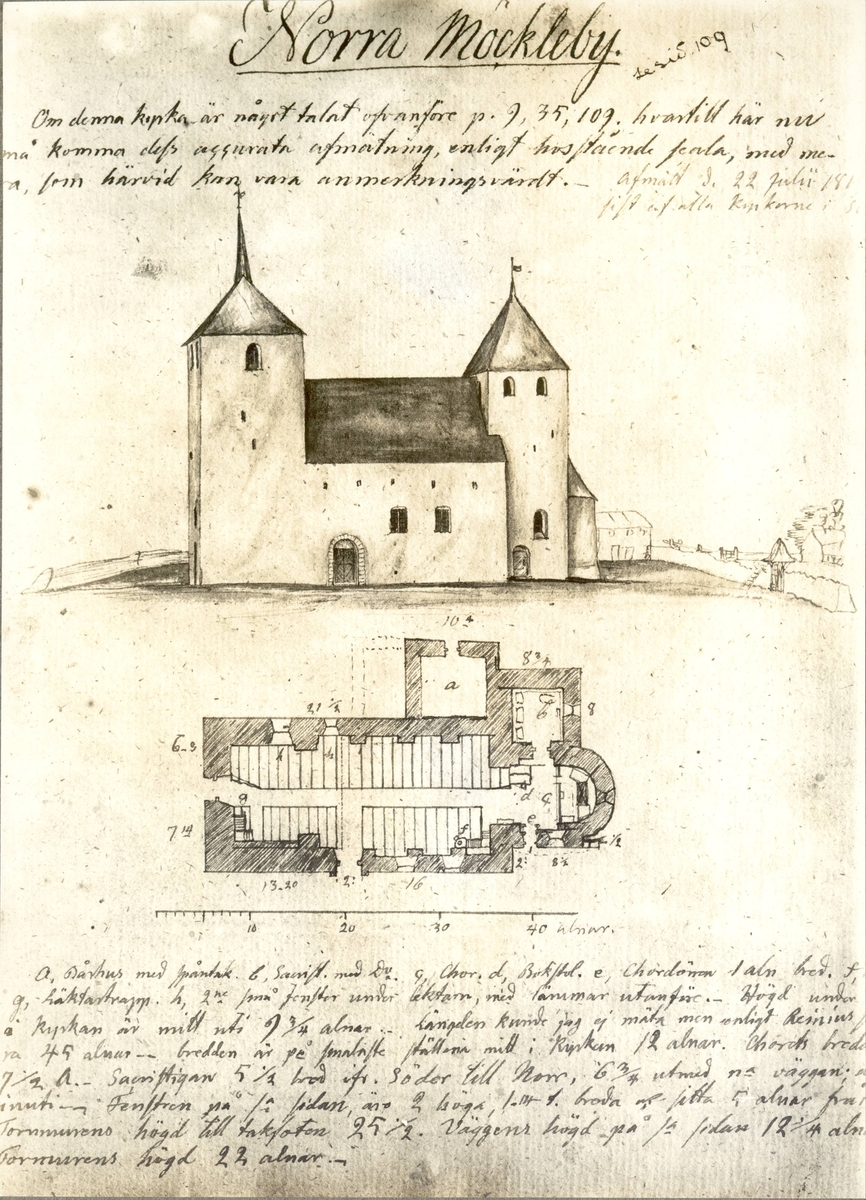 Norra Möckleby.
se sid. 109
Om denna kyrka är något talat ofvanföre p. 9, 35, 109. hvartill här nu
må komma dess accurata afmätning, enligt hosstående scala, med me-
ra, som härvid kan vara anmerkningsvärdt. —
Afmätt d. 22 Julii 181
sist af alla kyrkorne i
10 4
8 3/4
a
21 1/2
b
8
6-3
h
h
d
c
g
e
7 14
f
1/2
13-20
2:
16
2:
8 1/2
10 20 30 40 alnar.
a, Bårhus med spåntak. b, Sacrist. med Do. c, Chor. d, Bokstol. e, Chordörren 1 aln bred. f,
g, Läktartrapp. h, 2ne små fenster under läktarn, med lämmar utanföre. — Högd under
i Kyrkan är mitt uti 9 3/4 alnar. — Längden kunde jag ej mäta men enligt Reinius
ra 45 alnar — bredden är på smaliste ställena mitt i Kyrkan 12 alnar. Chorets bredd
7 1/2 A. — Sacristigan 5 1/2 bred ifr. Söder till Norr, 6 3/4 utmed na väggan;
inuti — Fenstren på sa sidan, äro 2 höga, breda och sitta 5 alnar från
Tornmurens högd till takfoten 25 1/2. Väggens högd på sa sidan 12 1/4 aln
Tornmurens högd 22 alnar. —